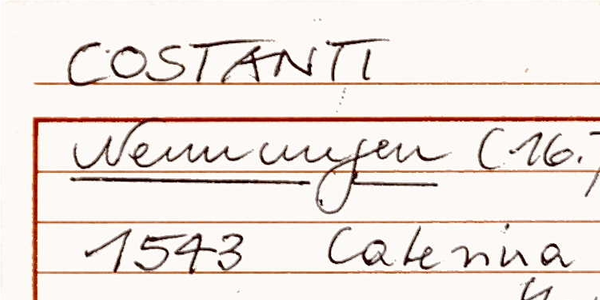 COSTANTI
Nennungen (16.)
1543 Caterina